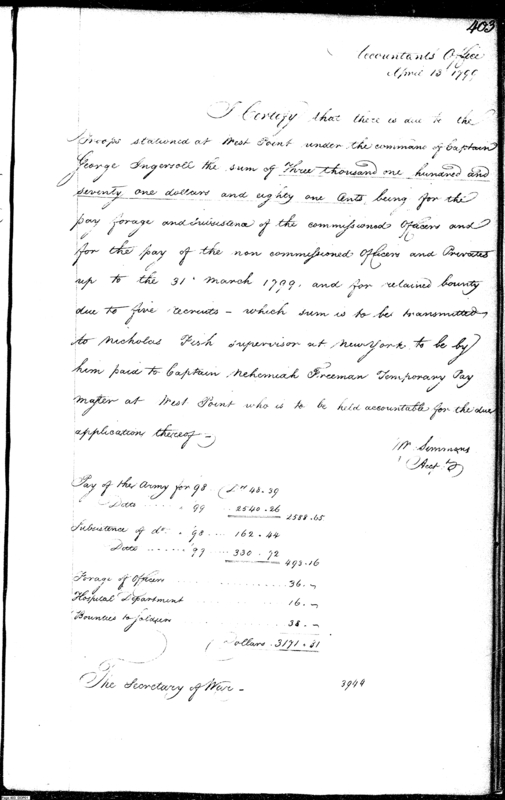 403
Accountants Office
April 13 1799
I Certify that there is due to the
Troops stationed at West Point under the command of Captain
George Ingersoll the sum of Three thousand one hundred and
seventy one dollars and eighty one Cents being for the
pay forage and subsistence of the commissioned Officers and
for the pay of the non commissioned Officers and Privates
up to the 31 March 1799. and for retained bounty
due to five recruits – which sum is to be transmitted
to Nicholas Fish supervisor at New York to be by
him paid to Captain Nehemiah Freeman Temporary Pay
master at West Point who is to be held accountable for the due
application thereof –
W Simmons
Acct
Pay of the Army for 98 48.39
Ditto 99 2540.26 2588.65
Subsistence of do. 98 162.44
Ditto 99 330.72 493.16
Forage of Officers 36.–
Hospital Department 16.–
Bounties to Soldiers 38.–
Dollars 3171.81
The Secretary of War –
3944